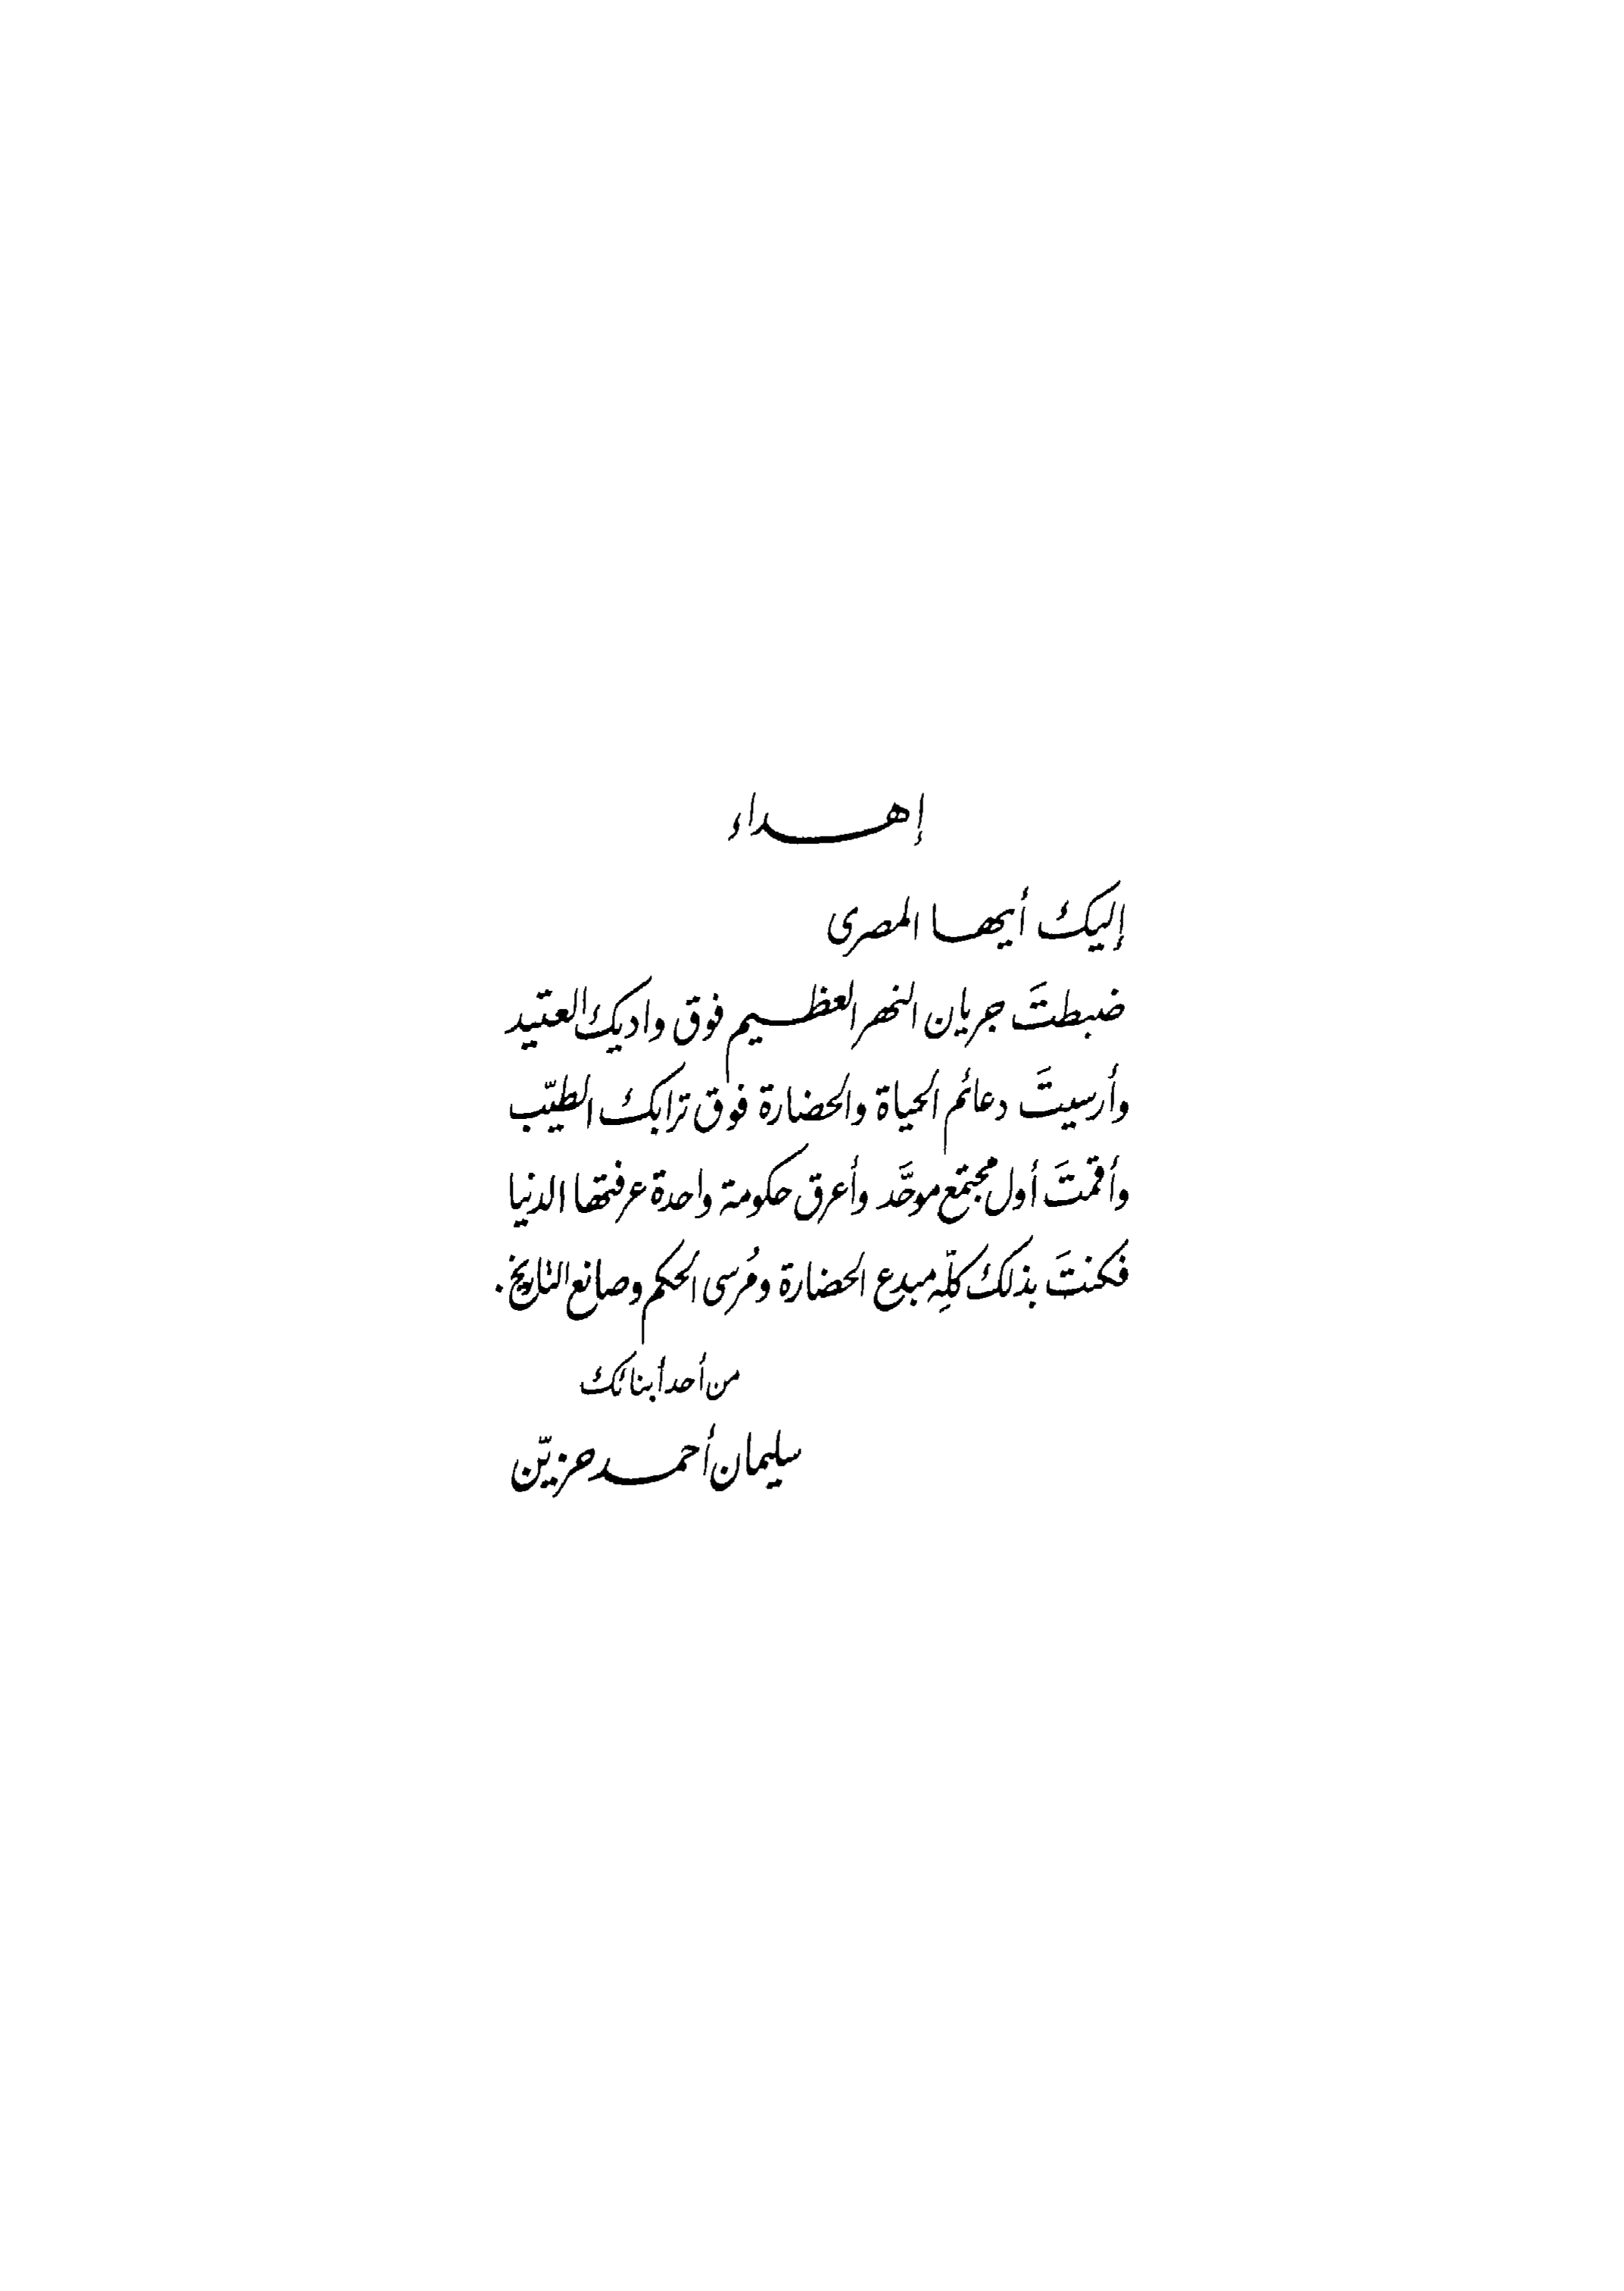 إهداء
إليك أيها المصرى
ضبطتَ جريان النهر العظيم فوق واديك العتيد
وأرسيتَ دعائم الحياة والحضارة فوق ترابك الطيّب
وأقمتَ أول مجتمع موحَّد وأعرق حكومة واحدة عرفتها الدنيا
فكنتَ بذلك كلّهِ مبدع الحضارة ومُرسى الحكم وصانع التاريخ.
من أحد أبنائك
سليمان أحمد حزيّن